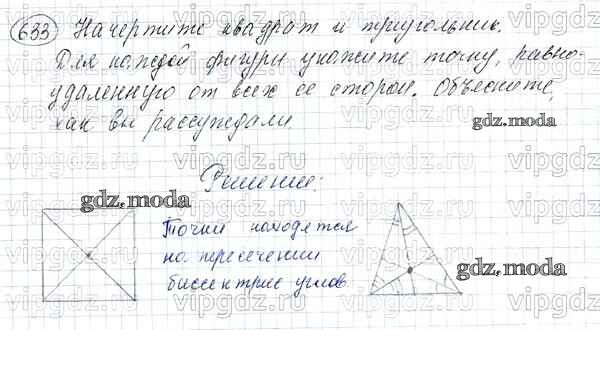 633 Начертите квадрат и треугольник.
Для каждой фигуры укажите точку, равно-
удаленную от всех ее сторон. Объясните,
как вы рассуждали.
gdz.moda
Решение:
gdz.moda
Точки находятся
на пересечении
биссектрис углов.
gdz.moda
vipgdz.ru